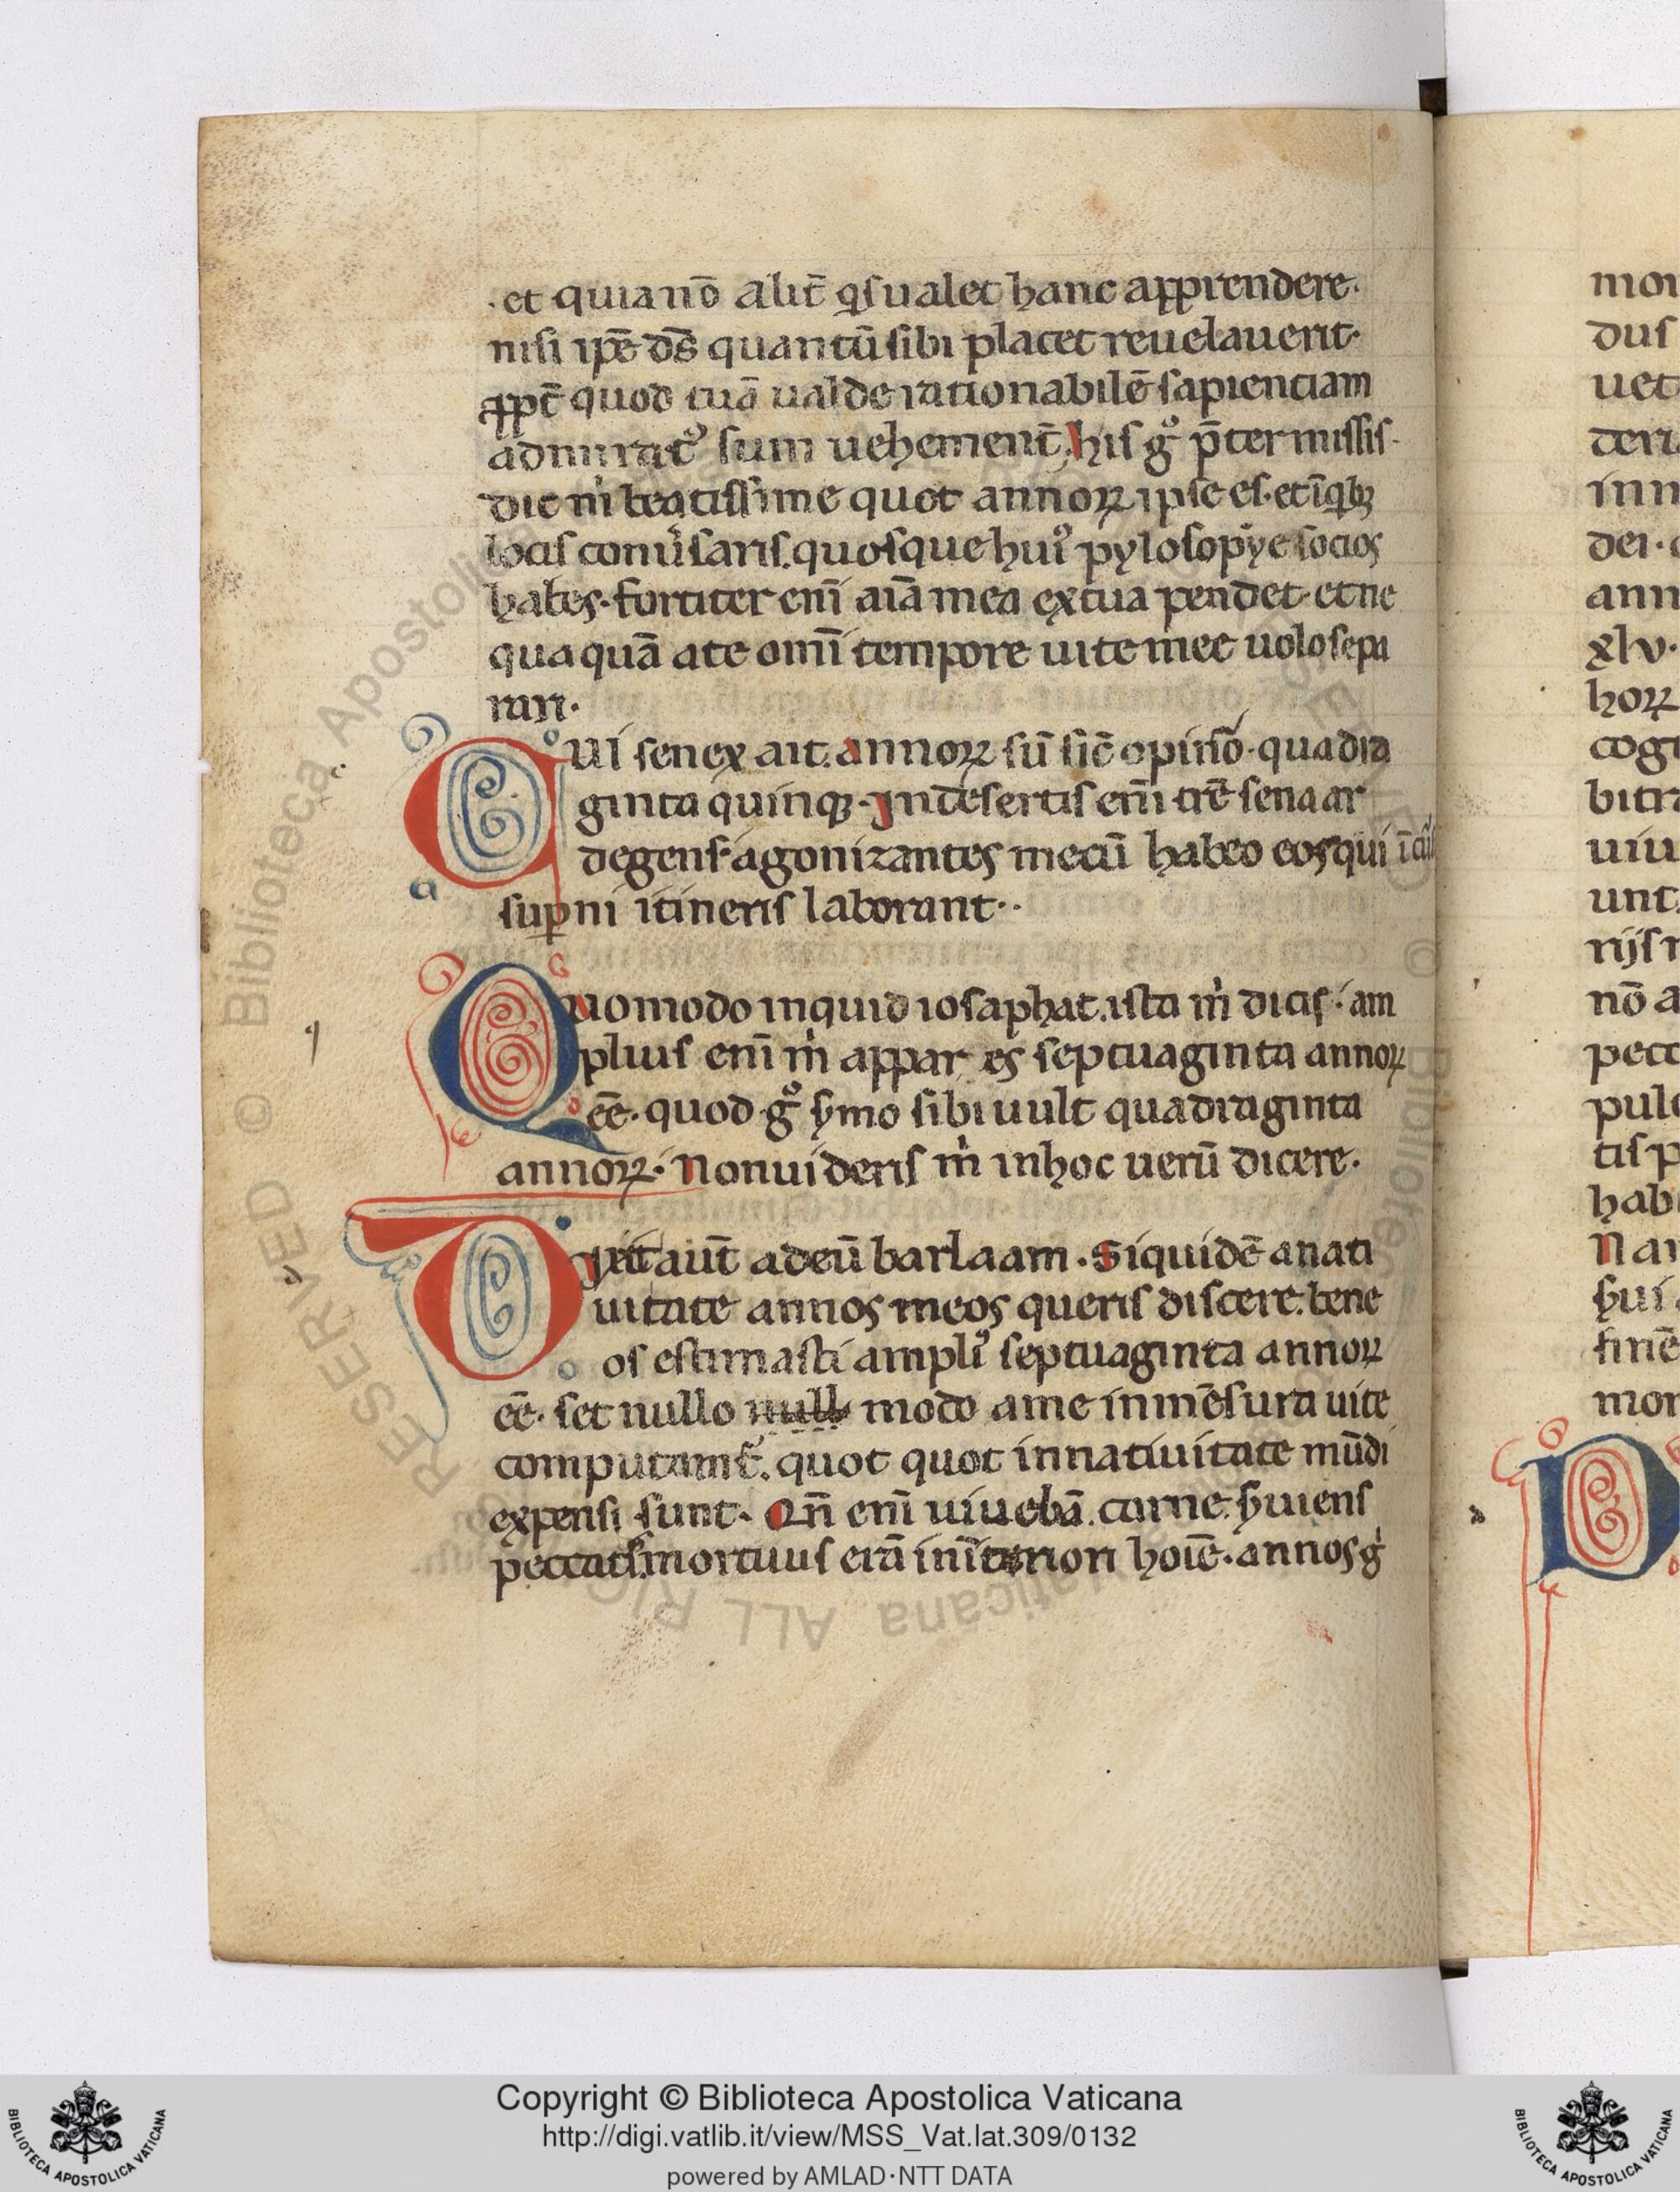 .et quia nō alit̄ qͥs ualet hanc apprendere.
nisi ipē ds̄ quantū sibi placet reuelauerit.
ꝓpt̄ quod tuā ualde rationabilē sapientiam
admirat᷒ sum uehement̄. his gͦ p̄termissis.
dic m̍ beatissime quot annoꝝ ipse es. et ī qͥbꝫ
locis conũsaris. quosque hui᷒ pylosopẏe socios
habes. fortiter enī aīa mea ex tua pendet. et ne
quaquā a te omī tempore uite mee uolo sepa
rari.
Cui senex ait. annoꝝ sū sic̄ opinō. quadra
ginta quinqꝫ. In desertis enī tr̄e senaar
degens. agonizantes mecū habeo eos qui ī
suꝑni itineris laborant..
Quomodo inquid iosaphat. ista m̍ dicis. am
plius enī m̍ appar es septuaginta annoꝝ
eē. quod gͦ ẜmo sibi uult quadraginta
annoꝝ. Non uideris m̍ in hoc uerū dicere.
Dixit aut̄ ad eū barlaam. Siquidē a nati
uitate annos meos queris discere. bene
os estimasti ampli᷒ septuaginta annoꝝ
eē. set nullo null modo a me in mēsura uite
computant᷒. quot quot in natiuitate mūdi
expensi sunt. Qn̄ enī uiuebā carne. ẜuiens
peccatis. mortuus erā in īteriori hoīe. annos gͦ
RESERVED © Biblioteca Apostolica Vaticana ALL RIGHTS
Copyright © Biblioteca Apostolica Vaticana
http://digi.vatlib.it/view/MSS_Vat.lat.309/0132
powered by AMLAD·NTT DATA
BIBLIOTECA APOSTOLICA VATICANA
BIBLIOTECA APOSTOLICA VATICANA